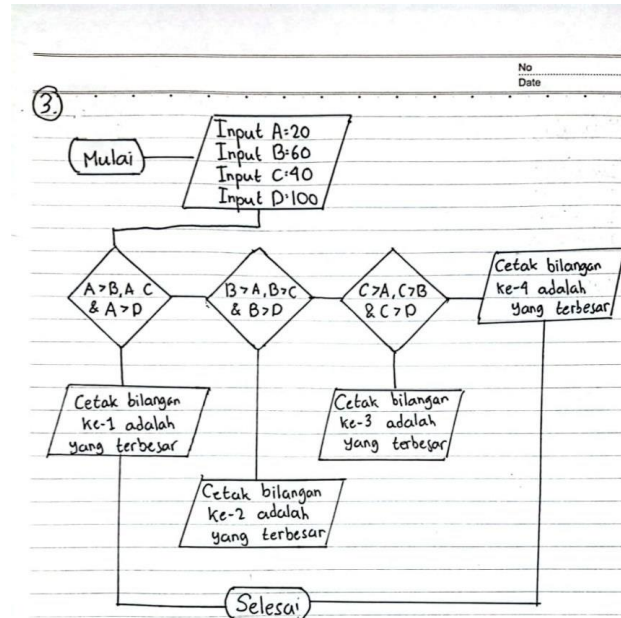 No
Date
3.
Mulai
Input A=20
Input B=60
Input C=40
Input D=100
A>B, A C
& A>D
B>A, B>C
& B>D
C>A, C>B
& C>D
Cetak bilangan
ke-4 adalah
yang terbesar
Cetak bilangan
ke-1 adalah
yang terbesar
Cetak bilangan
ke-3 adalah
yang terbesar
Cetak bilangan
ke-2 adalah
yang terbesar
Selesai